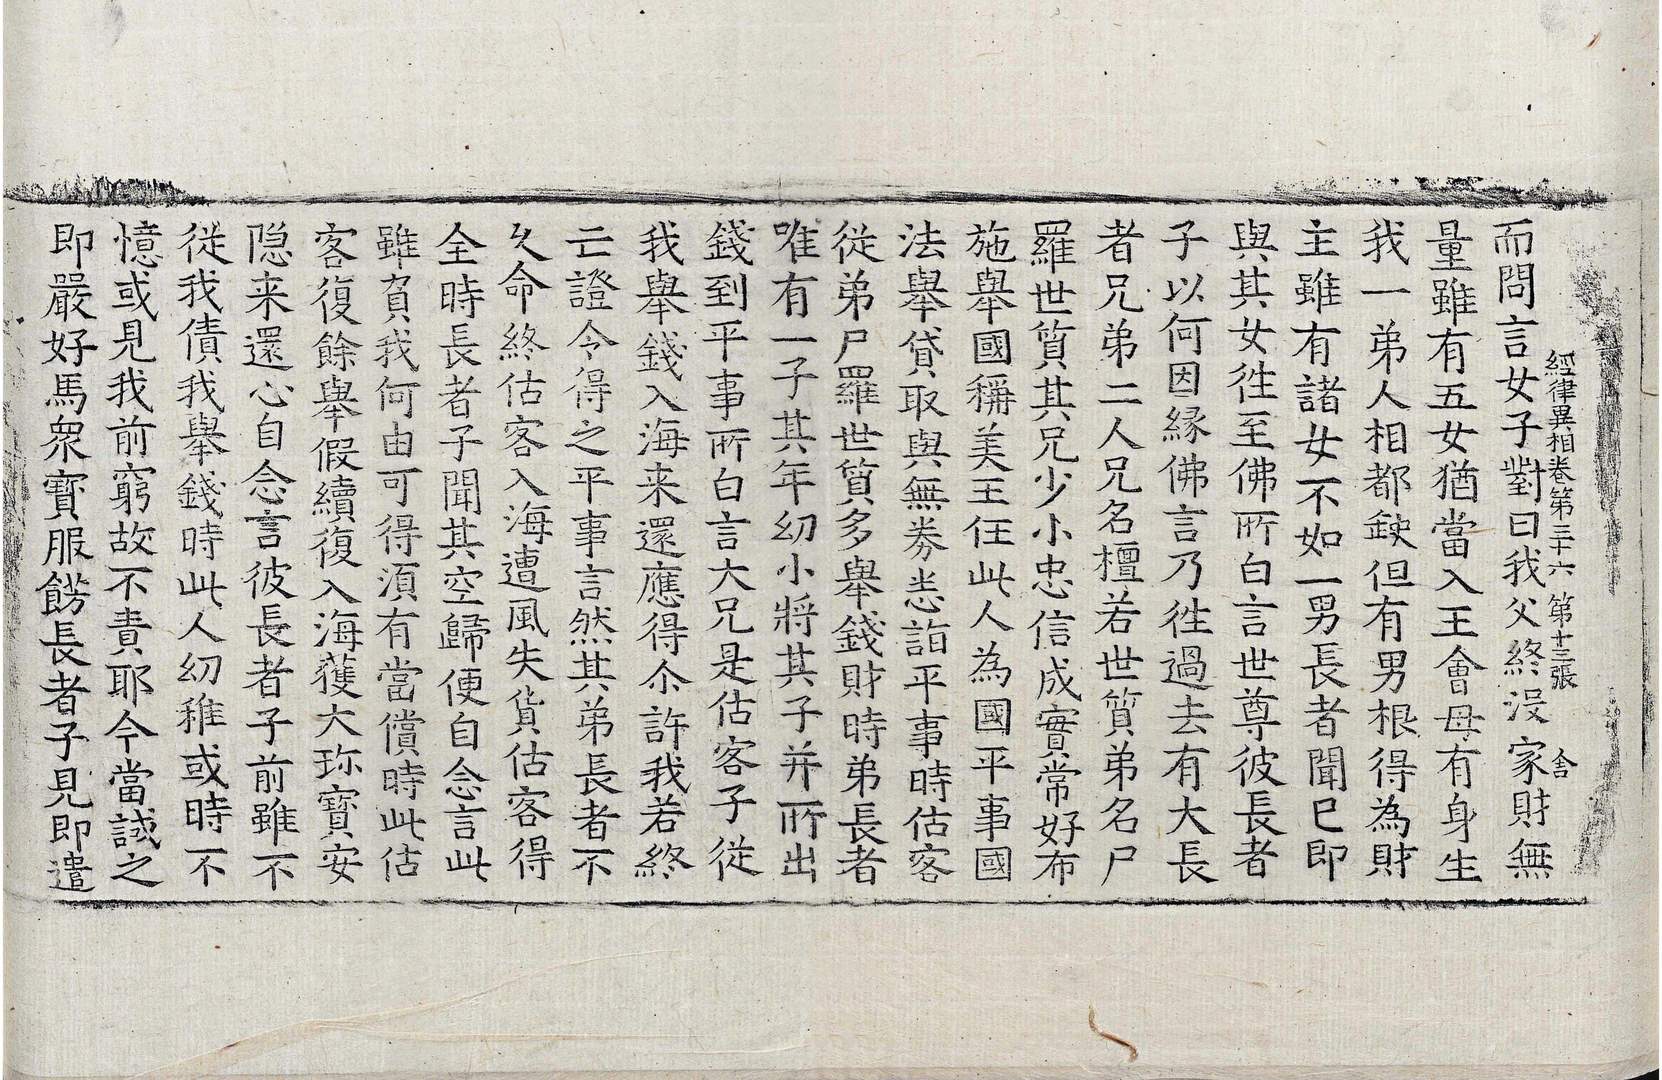 經律異相卷第三十六 第十三張 舍
而問言女子對曰我父終没家財無
量雖有五女猶當入王會母有身生
我一弟人相都缺但有男根得為財
主雖有諸女不如一男長者聞已即
與其女徃至佛所白言世尊彼長者
子以何因縁佛言乃徃過去有大長
者兄弟二人兄名檀若世質弟名尸
羅世質其兄少小忠信成實常好布
施舉國稱美王任此人為國平事國
法舉貸取與無券悉詣平事時估客
従弟尸羅世質多舉錢財時弟長者
唯有一子其年幼小將其子并所出
錢到平事所白言大兄是估客子従
我舉錢入海来還應得尒許我若終
亡證令得之平事言然其弟長者不
久命終估客入海遭風失貨估客得
全時長者子聞其空歸便自念言此
雖負我何由可得湏有當償時此估
客復餘舉假續復入海獲大珎寶安
隐来還心自念言彼長者子前雖不
従我債我舉錢時此人幼稚或時不
憶或見我前窮故不責耶今當試之
即嚴好馬衆寳服餝長者子見即遣